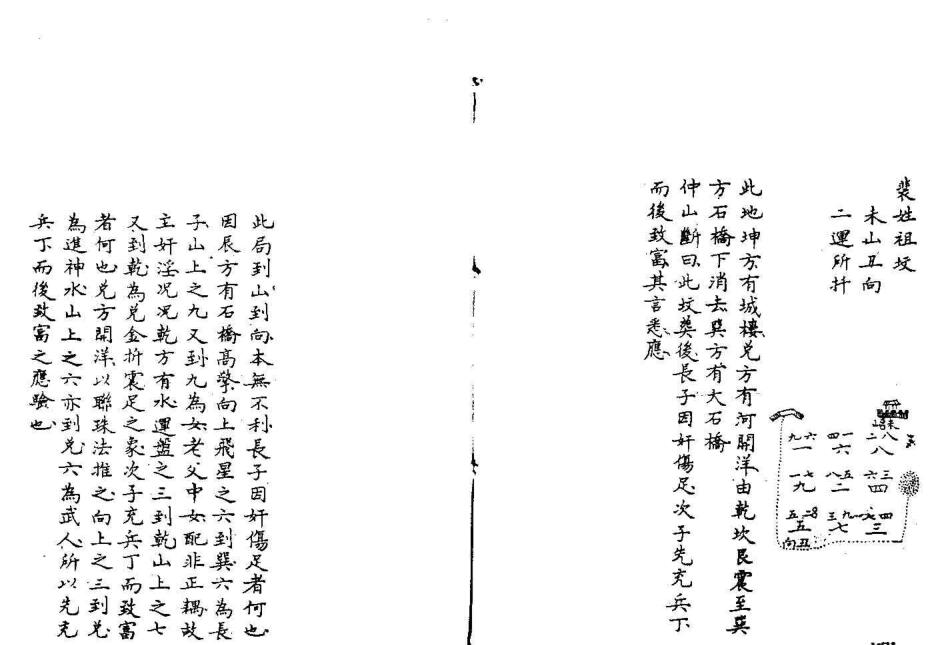 裴姓祖坟
未山丑向
二運所扦
此地坤方有城樓兌方有河開洋由乾坎艮震至巽
方石橋下消去巽方有大石橋
仲山斷曰此坟葬後長子因奸傷足次子先充兵丁
而後致富其言悉應
九六 四一 二八
一 六 八
一七 八五 六三
九 二 四
五二 三九 七四
五 七 三
向丑
此局到山到向本無不利長子因奸傷足者何也
因辰方有石橋高聳向上飛星之六到巽六為長
子山上之九又到九為女老父中女配非正耦故
主奸淫况况乾方有水運盤之三到乾山上之七
又到乾為兌金折震足之象次子充兵丁而致富
者何也兌方開洋以聯珠法推之向上之三到兌
為進神水山上之六亦到兌六為武人所以先充
兵丁而後致富之應驗也